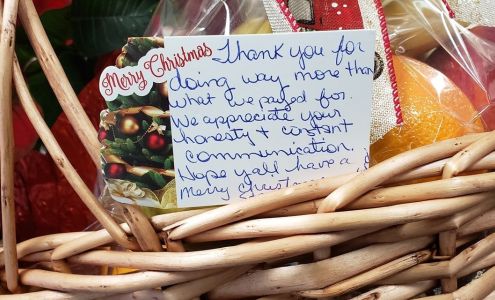 Merry Christmas
Thank you for
doing way more than
what we payed for.
We appreciate your
honesty & constant
communication.
Hope yall have a
merry christmas